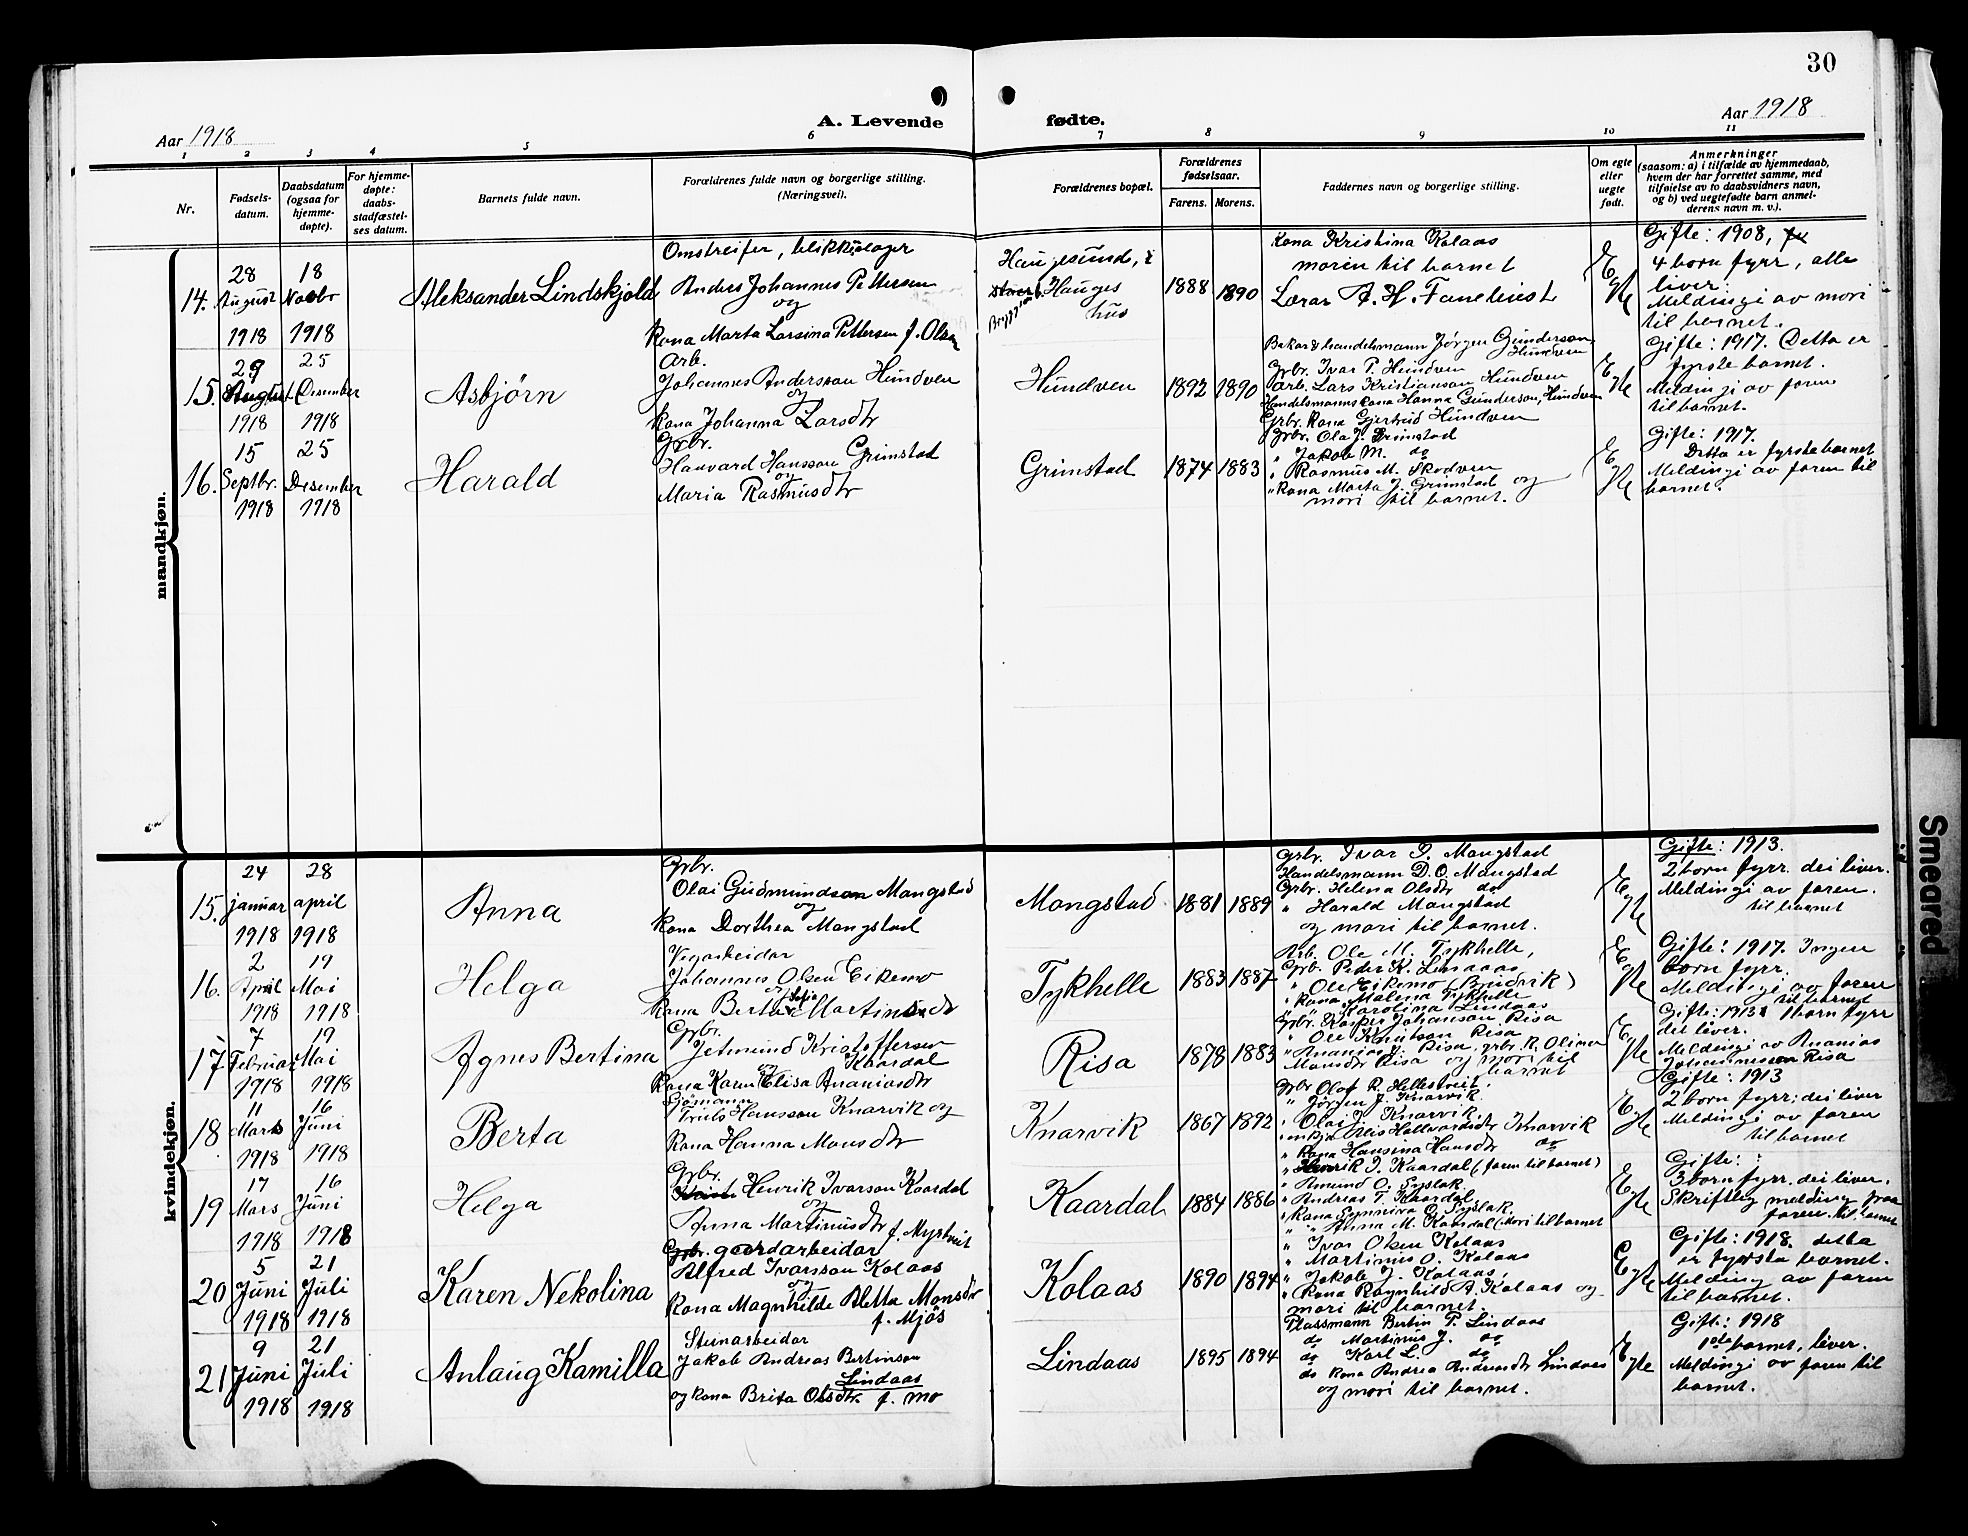 30
Aar 1918
A. Levende fødte.
Aar 1918
1 2 3 4 5 6 7 8 9 10 11
Nr.
Fødsels-
datum.
Daabsdatum
(ogsaa for
hjemme-
døpte).
For hjemme-
døpte:
daabs-
stadfæstel-
ses datum.
Barnets fulde navn.
Forældrenes fulde navn og borgerlige stilling.
(Næringsvei).
Forældrenes bopæl.
Forældrenes
fødselsaar.
Farens. Morens.
Faddernes navn og borgerlige stilling.
Om egte
eller
uegte
født.
Anmerkninger
(saasom: a) i tilfælde av hjemmedaab,
hvem der har forrettet samme, med
tilføielse av to daabsvidners navn,
og b) ved uegtefødte barn anmel-
derens navn m. v.).
mandkjøn.
14.
28
August
1918
18
Novbr
1918
Aleksander Lindskjold
Omstreifer, blikkslager
Anders Johannes Pettersen
og
kona Marta Larsina Pettersen f. Olsen
Haugesund, i
Hauges
hus
1888
1890
Kona Kristina Kolaas
moren til barnet
Lærar A. H. Fanebust
Egte
Gifte: 1908,
4 born fyrr, alle
liver.
Meldingi av mori
til barnet.
15.
29
August
1918
25
Desember
1918
Asbjørn
Arb.
Johannes Andersson Hundven
og
kona Johanna Larsdtr
Hundven
1892
1890
Bakar & handelsmann Jørgen Gunderson
Hundven
Grbr. Ivar P. Hundven
Arb. Lars Kristianson Hundven
Handelsmannskona Hanna Gunderson, Hundven
Grbr. kona Gjertrud Hundven
Egte
Gifte: 1917. Detta er
fyrste barnet.
Meldingi av faren
til barnet.
16.
15
Septbr.
1918
25
Desember
1918
Harald
Grbr.
Haavard Hansson Grimstad
og
Maria Rasmusdtr
Grimstad
1874
1883
Grbr. Ola J. Grimstad
" Jakob M. do
" Rasmus M. Skodven
" kona Marta J. Grimstad og
mori til barnet.
Egte
Gifte: 1917.
Detta er fyrste barnet
Meldingi av faren til
barnet.
kvindekjøn.
15.
24
januar
1918
28
april
1918
Anna
Grbr.
Olai Gudmundson Mongstad
og
kona Dorthea Mongstad
Mongstad
1881
1889
Grbr. Ivar I. Mongstad
Handelsmann D. O. Mongstad
Grbr. Helena Olsdtr do
" Harald Mongstad
og mori til barnet.
Egte
Gifte: 1913.
2 born fyrr. dei liver.
Meldingi av faren.
til barnet
16.
2
April
1918
19
Mai
1918
Helga
Vegarbeidar
Johannes Olsen Eikemo
og
kona Berta Sofie Martinsdr
Tykhelle
1883
1887
Arb. Ole M. Tykhelle,
Grbr. Peder K. Lindaas
" Ole Eikemo (Brudvik)
" kona Malena Tykhelle
" " Karolina Lindaas
Egte
Gifte: 1917. Ingen
born fyrr.
Meldingi av faren
til barnet
17
7
Februar
1918
19
Mai
1918
Agnes Bertina
Grbr.
Jetmund Kristoffersen
Kaardal
og
kona Karen Elisa Ananiasdtr
Risa
1878
1883
Grbr. Kasper Johanson Risa
" Ole Knutson Risa
" Ananias J. Risa, grbr. R. Olina
Monsdtr Risa og mori til
barnet
Egte
Gifte: 1913. 1 barn fyrr
det liver.
Meldingi av Ananias
Johannesson Risa
18
11
Mars
1918
16
Juni
1918
Berta
Sjömann
Truls Hansson Knarvik og
kona Hanna Monsdtr
Knarvik
1867
1892
Grbr. Olaf R. Hellestveit.
" Jørgen J. Knarvik.
" Olai J. Knarvik.
Nils Hallvardsdtr Knarvik
" kona Hansina Hansdtr do
Egte
Gifte: 1913
2 born fyrr: dei liver
Meldingi av faren
til barnet
19
17
Mars
1918
16
Juni
1918
Helga
Grbr.
Henrik Ivarson Kaardal
og
Anna Martinusdtr f. Myrtveit
Kaardal
1884
1886
" Henrik I. Kaardal (faren til barnet)
" Amund O. Syslak
" Andreas T. Kaardal
" Kona Synneva O. Syslak.
" " Anna M. Kaardal (mori til barnet
Egte
Gifte: :
3 born fyrr. dei liver.
Skriftleg melding fraa
faren til barnet
20
5
Juni
1918
21
Juli
1918
Karen Nekolina
Grbr. gardarbeidar
Alfred Ivarsson Kolaas
og
Kona Magnhilde Aletta Monsdtr
f. Mjøs
Kolaas
1890
1894
" Ivar Olsen Kolaas
" Martinus O. Kolaas
" Jakob J. Kolaas,
" Kona Ragnhild A. Kolaas og
mori til barnet.
Egte
Gifte: 1918. detta
er fyrsta barnet.
Melding av faren
til barnet.
21
9
Juni
1918
21
Juli
1918
Anlaug Kamilla
Steinarbeidar
Jakob Andreas Bertinson
Lindaas
og kona Brita Olsdtr. f. Mo
Lindaas
1895
1894
Plassmann Bertin P. Lindaas
do Martinus J. do
do Karl L. do
do kona Andrea Andreasdtr Lindaas
og mori til barnet.
Egte
Gifte: 1918
1ste barnet, liver.
Meldingi av faren til
barnet.
Smeared